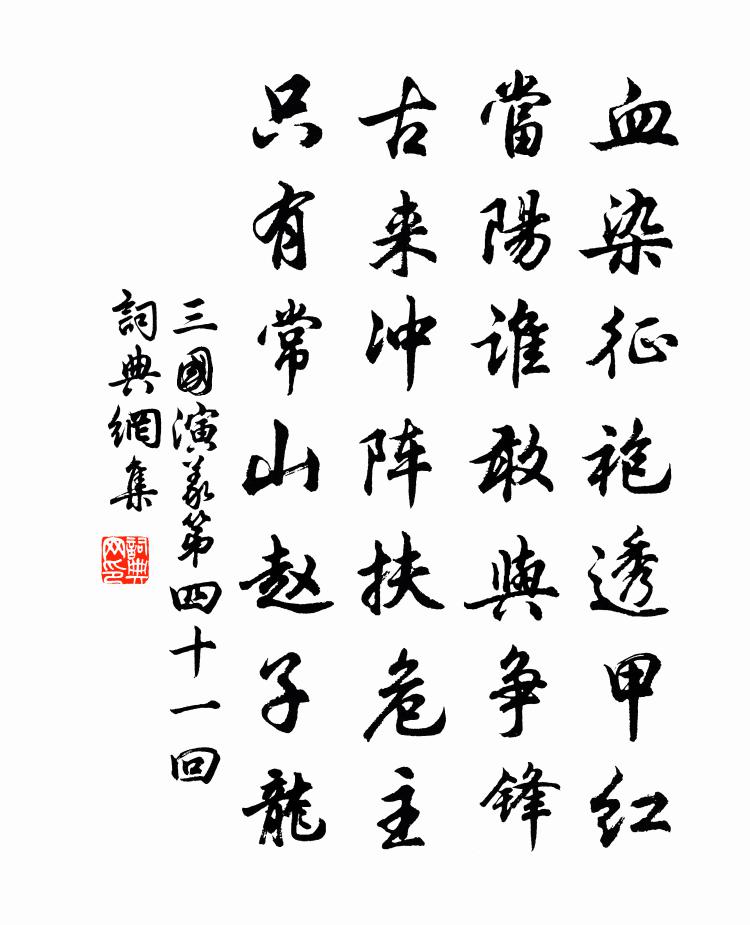 血染征袍透甲红
當陽谁敢與争锋
古来冲阵扶危主
只有常山赵子龍
三國演義第四十一回
詞典網集
詞典
网印